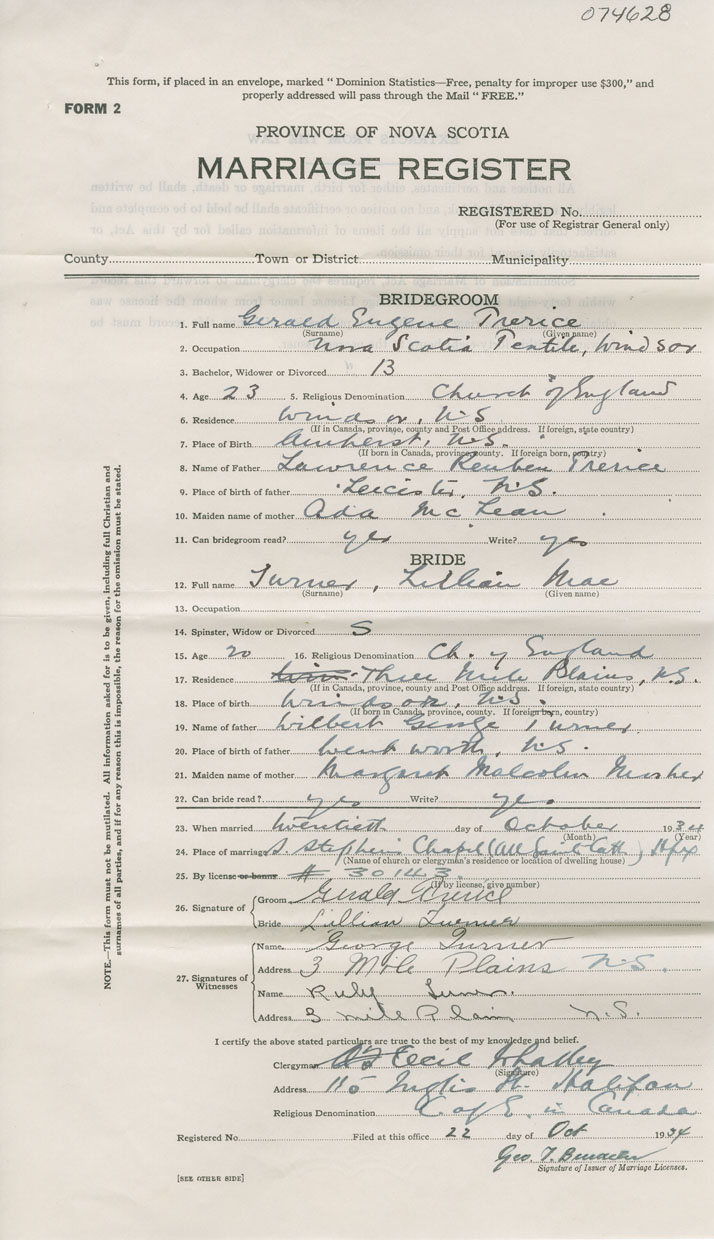 074628
This form, if placed in an envelope, marked “ Dominion Statistics—Free, penalty for improper use $300,” and
properly addressed will pass through the Mail “ FREE.”
FORM 2
PROVINCE OF NOVA SCOTIA
MARRIAGE REGISTER
REGISTERED No.
(For use of Registrar General only)
County Town or District Municipality
BRIDEGROOM
1. Full name Gerald Eugene Trerice
(Surname) (Given name)
2. Occupation Nova Scotia Textile, Windsor
3. Bachelor, Widower or Divorced B
4. Age 23 5. Religious Denomination Church of England
6. Residence Windsor, N.S.
(If in Canada, province, county and Post Office address. If foreign, state country)
7. Place of Birth Amherst, N.S.
(If born in Canada, province, county. If foreign born, country)
8. Name of Father Lawrence Reuben Trerice
9. Place of birth of father Leicester, N.S.
10. Maiden name of mother Ada McLean
11. Can bridegroom read? yes Write? yes
BRIDE
12. Full name Turner, Lillian Mae
(Surname) (Given name)
13. Occupation
14. Spinster, Widow or Divorced S
15. Age 20 16. Religious Denomination Ch. of England
17. Residence Three Mile Plains, N.S.
(If in Canada, province, county and Post Office address. If foreign, state country)
18. Place of birth Windsor, N.S.
(If born in Canada, province, county. If foreign born, country)
19. Name of father Wilbert George Turner
20. Place of birth of father Wentworth, N.S.
21. Maiden name of mother Margaret Malcolm Mosher
22. Can bride read? yes Write? yes
23. When married twentieth day of October 1934
(Month) (Year)
24. Place of marriage S. Stephen's Chapel (All Saints Cath.) Hfx
(Name of church or clergyman's residence or location of dwelling house)
25. By license or banns # 30143
(If by license, give number)
26. Signature of Groom Gerald Trerice
Bride Lillian Turner
27. Signatures of Witnesses
Name George Turner
Address 3 Mile Plains N.S.
Name Ruby
Address 3 mile Plain N.S.
I certify the above stated particulars are true to the best of my knowledge and belief.
Clergyman Cecil Whalley
(Signature)
Address 115 Inglis St. Halifax
Religious Denomination C of E. in Canada
Registered No. Filed at this office 22 day of Oct 1934
Geo. T.
Signature of Issuer of Marriage Licenses.
[SEE OTHER SIDE]
NOTE.—This form must not be mutilated. All information asked for is to be given, including full Christian and
surnames of all parties, and if for any reason this is impossible, the reason for the omission must be stated.